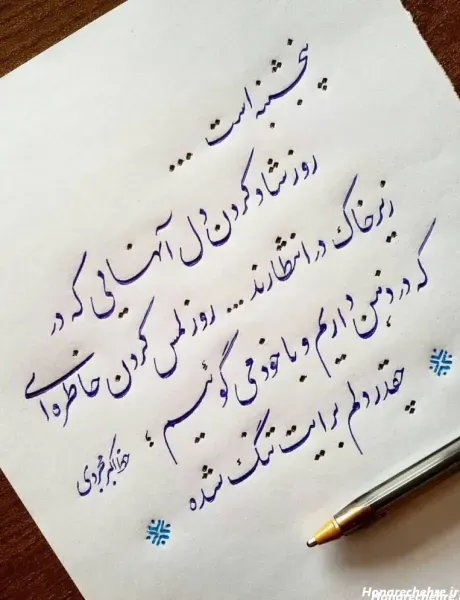 پنجشنبه است ...
روز شاد کردن دل آنهایی که در
زیر خاک در انتظارند ... روز لمس کردن خاطره ای
که در ذهن داریم و با خود می گوئیم ؛
چقدر دلم برایت تنگ شده
Honarechehre.ir
Honarechehre.ir